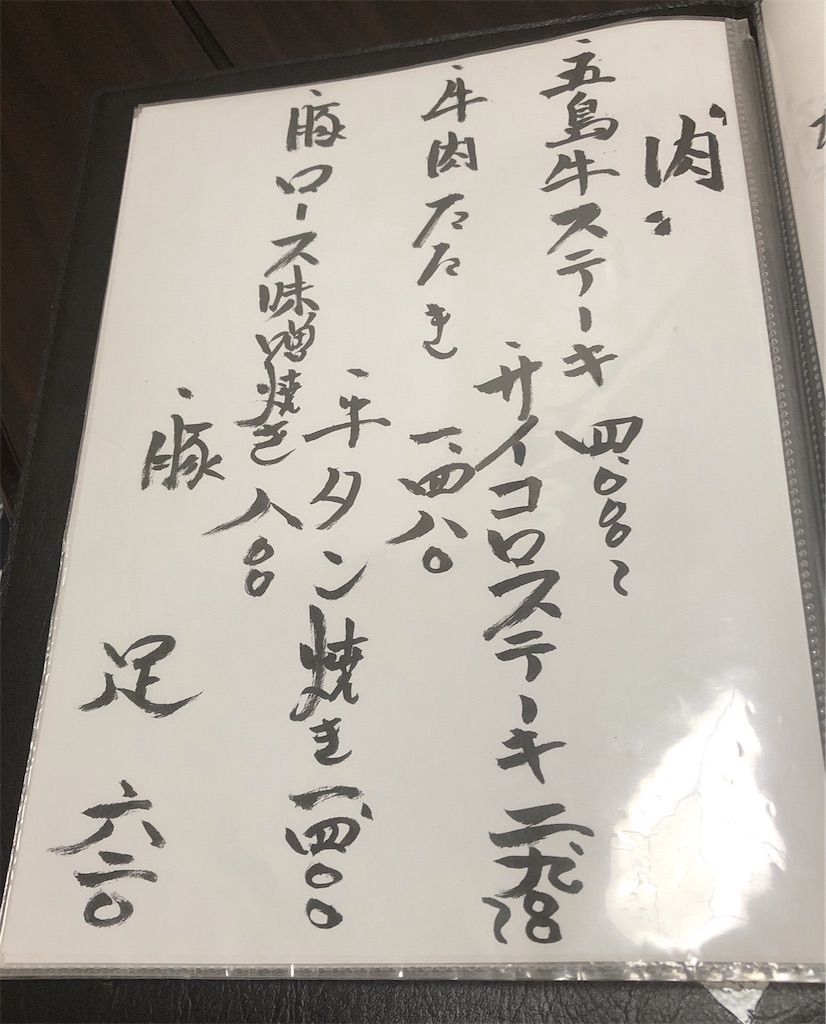 肉
・五島牛ステーキ 四、〇〇〇〜
・サイコロステーキ 二、九〇〇〜
・牛肉たたき 一、四八〇
・牛タン焼き 一、四〇〇
・豚ロース味噌焼き 八〇〇
・豚足 六二〇